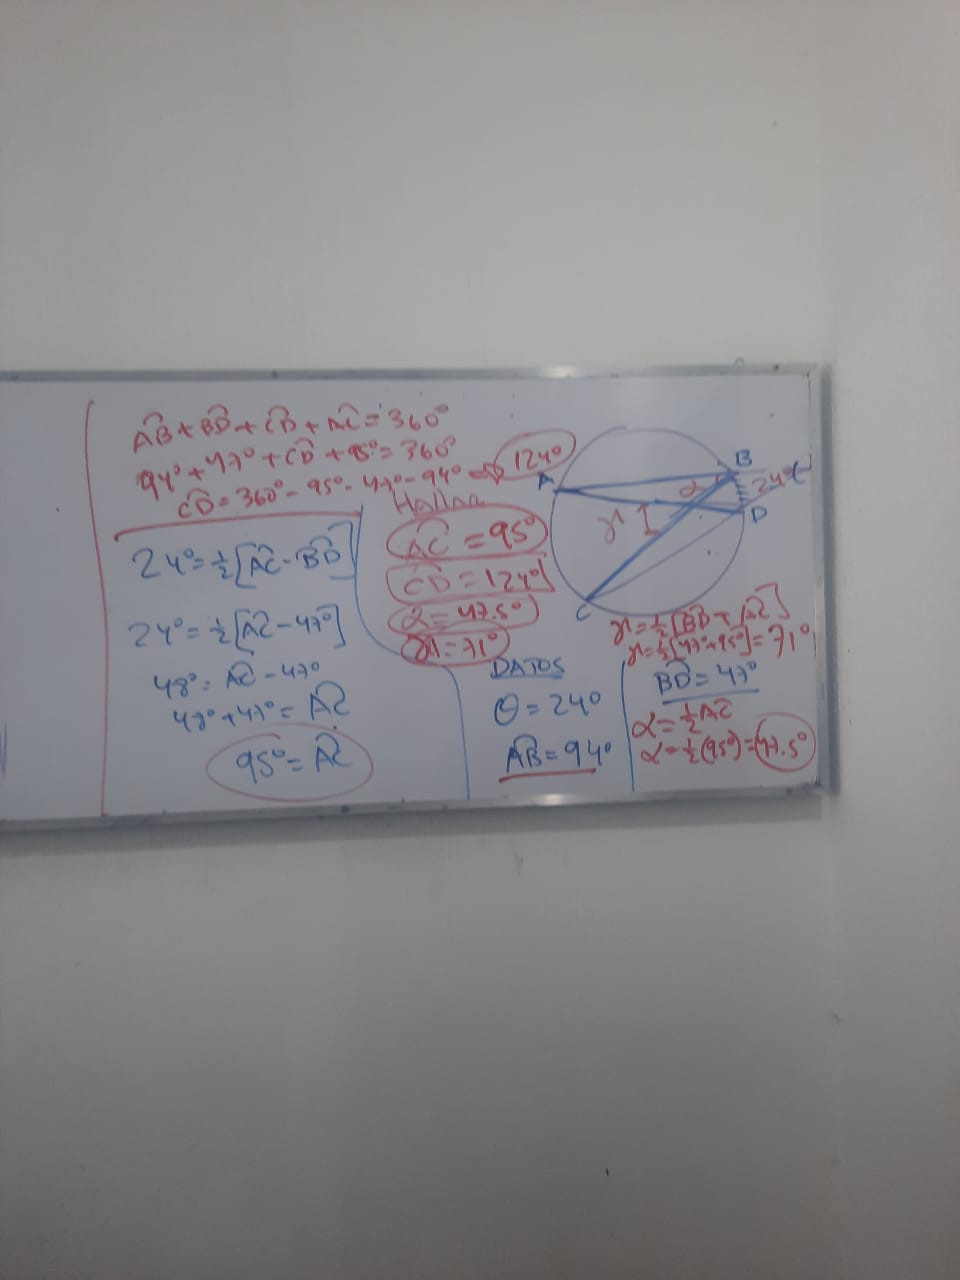 AB + BD + CD + AC = 360°
94° + 47° + CD + 95° = 360°
CD = 360° - 95° - 47° - 94° ⇒ 124°
24° = 1/2 [AC - BD]
24° = 1/2 [AC - 47°]
48° = AC - 47°
48° + 47° = AC
95° = AC
Hallar
AC = 95°
CD = 124°
α = 47.5°
γ = 71°
DATOS
θ = 24°
AB = 94°
A
B
24°
D
α
γ
C
γ = 1/2 [BD + AC]
γ = 1/2 [47° + 95°] = 71°
BD = 47°
α = 1/2 AC
α = 1/2 (95°) = 47.5°